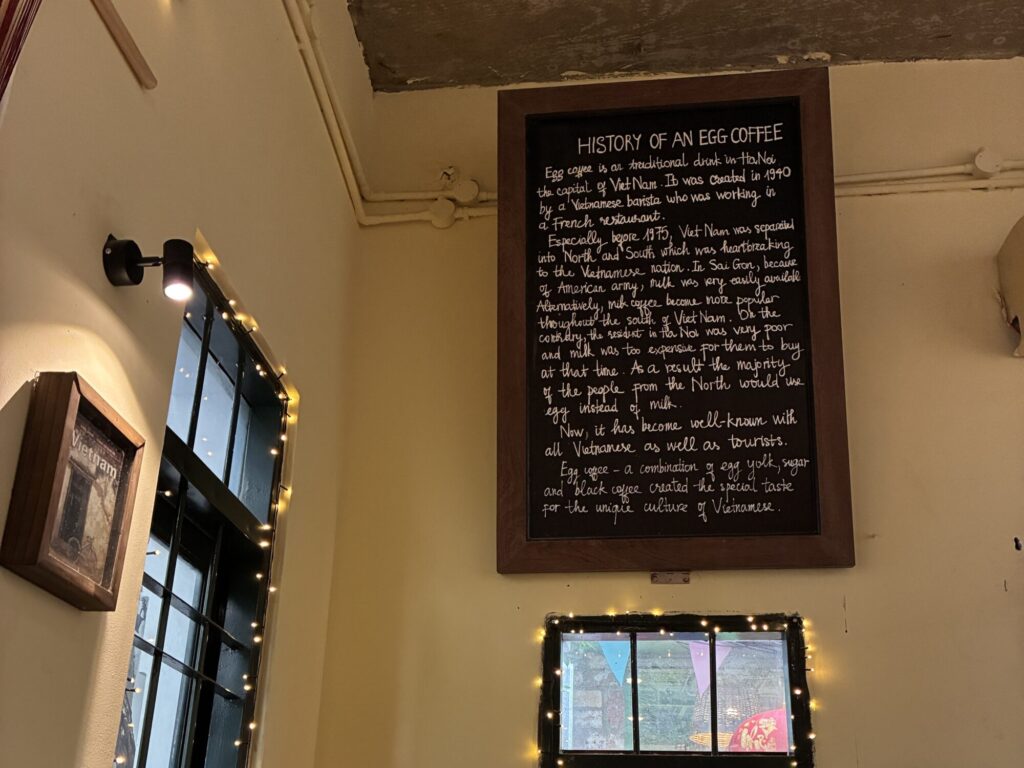 Vietnam
HISTORY OF AN EGG COFFEE
Egg coffee is an traditional drink in HaNoi
the capital of Viet Nam. It was created in 1940
by a Vietnamese barista who was working in
a French restaurant.
Especially before 1975, Viet Nam was separated
into North and South which was heartbreaking
to the Vietnamese nation. In Sai Gon, because
of American army, milk was very easily available
Alternatively, milk coffee become more popular
thoughout the south of Viet Nam. On the
contrary, the resident in Ha Noi was very poor
and milk was too expensive for them to buy
at that time. As a result the majority
of the people from the North would use
egg instead of milk.
Now, it has become well-known with
all Vietnamese as well as tourists.
Egg coffee - a combination of egg yolk, sugar
and black coffee created the special taste
for the unique culture of Vietnamese.